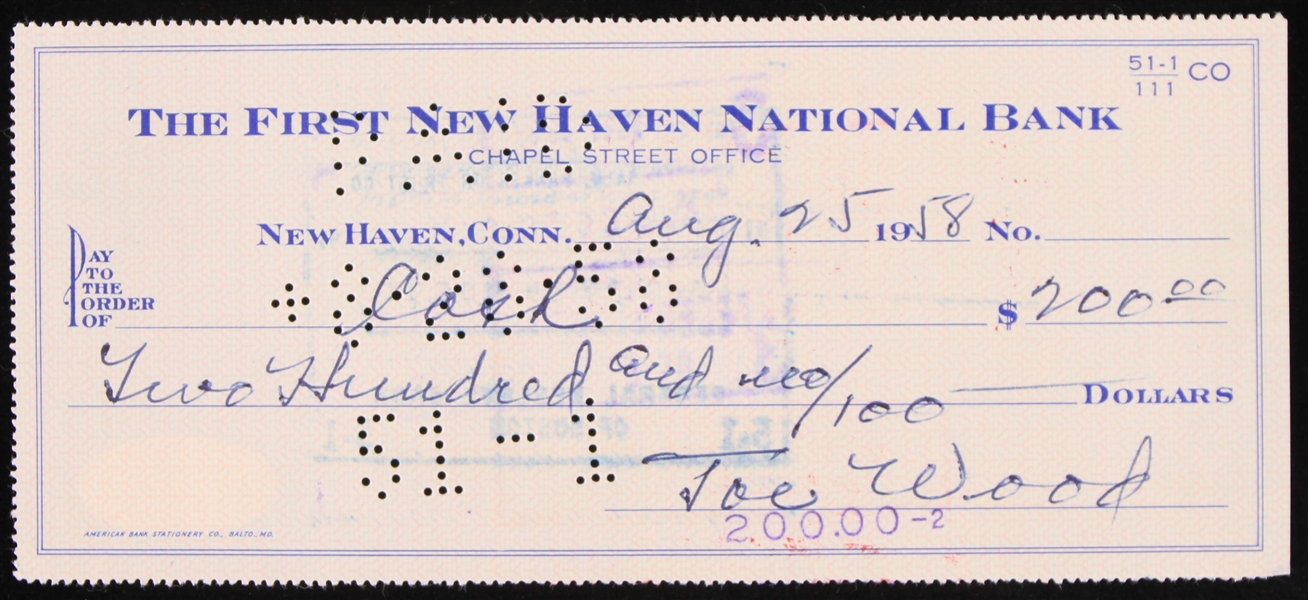 51-1
111 CO
THE FIRST NEW HAVEN NATIONAL BANK
CHAPEL STREET OFFICE
NEW HAVEN, CONN. Aug. 25 1958 No.
PAY
TO
THE
ORDER
OF Cash $ 200 00
Two Hundred and no/100 DOLLARS
51-1
Joe Wood
200.00-2
AMERICAN BANK STATIONERY CO., BALTO., MD.